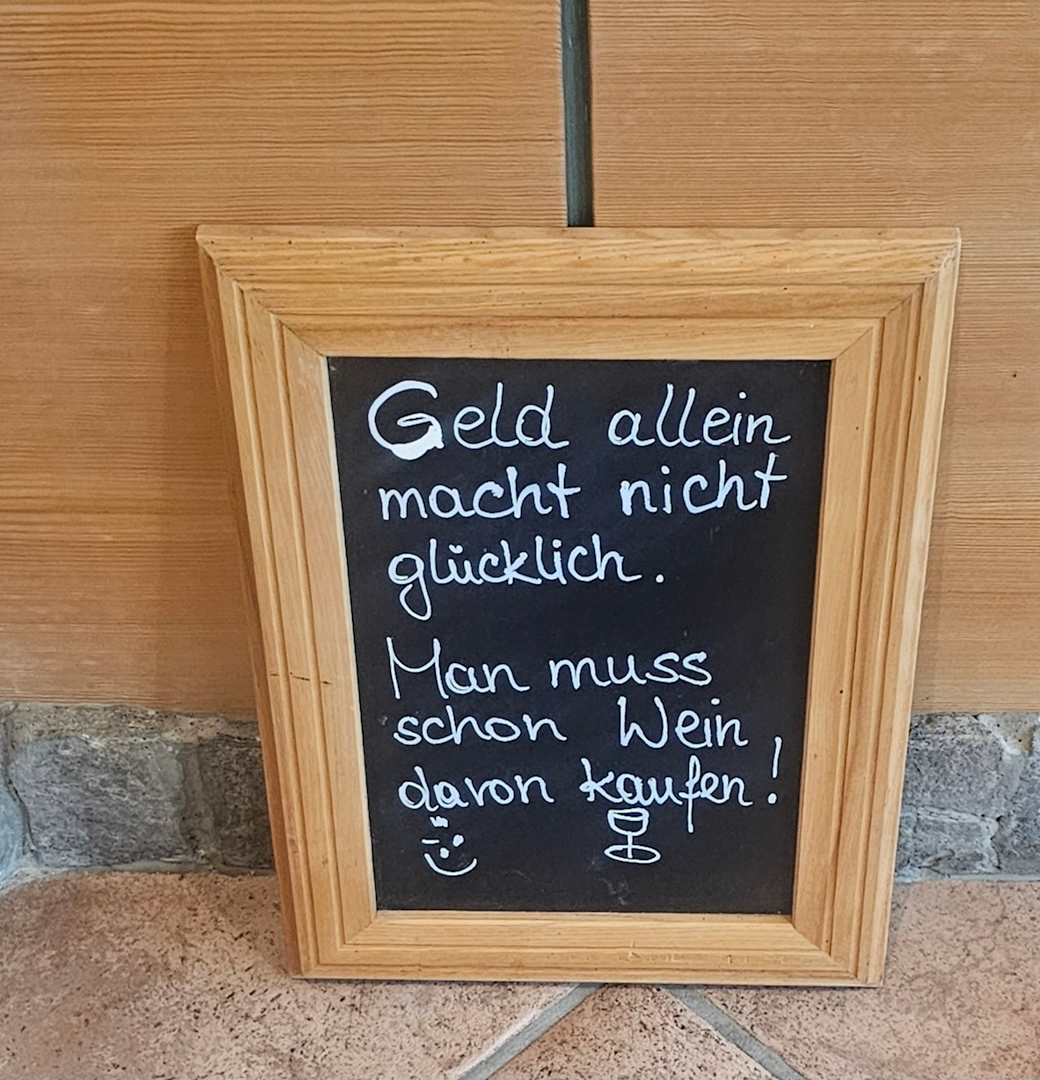 Geld allein
macht nicht
glücklich.
Man muss
schon Wein
davon kaufen!